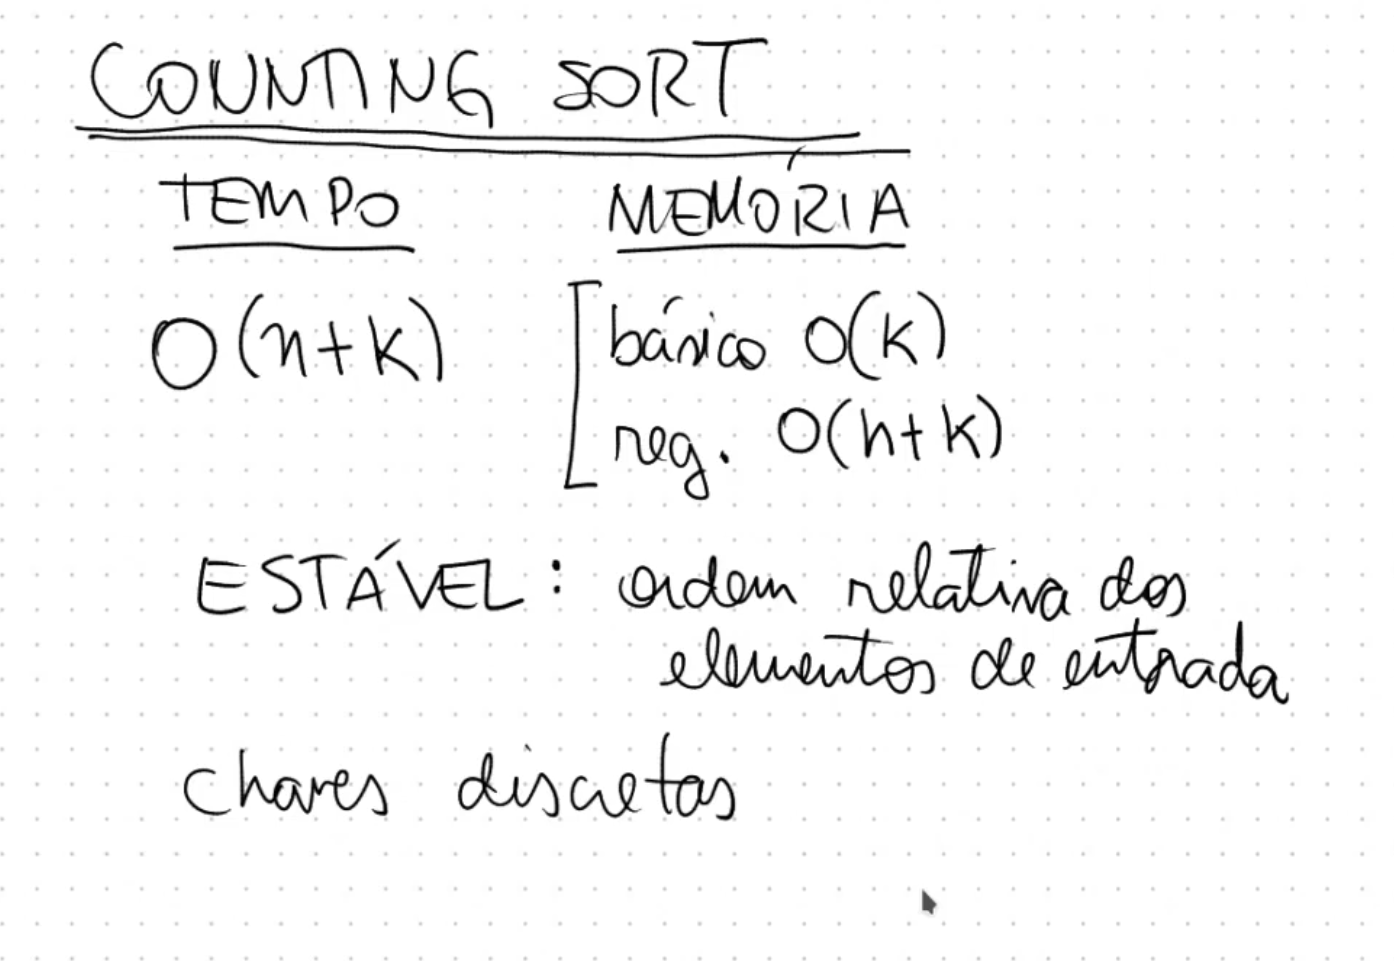 COUNTING SORT
TEMPO MEMÓRIA
O(n+k) básico O(k)
reg. O(n+k)
ESTÁVEL: ordem relativa dos
elementos de entrada
chaves discretas